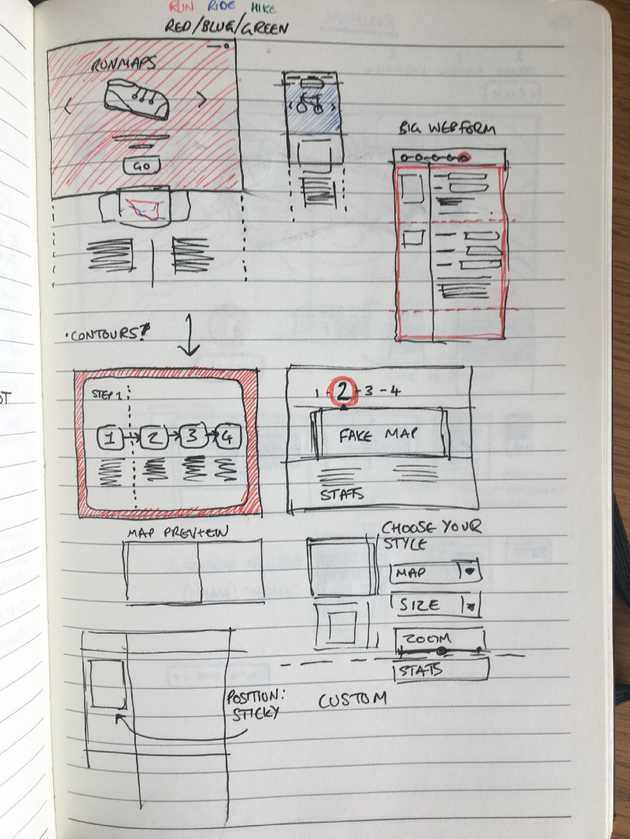 RUN RIDE HIKE
RED/BLUE/GREEN
RUNMAPS
< >
GO
BIG WEBFORM
•CONTOURS?
STEP 1
1 → 2 → 3 → 4
1 - 2 - 3 - 4
FAKE MAP
STATS
MAP PREVIEW
CHOOSE YOUR
STYLE
MAP
SIZE
ZOOM
STATS
POSITION:
STICKY
CUSTOM